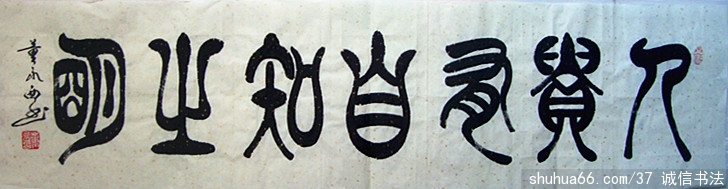 人贵有自知之明
董永西书
shuhua66.com/37 诚信书法